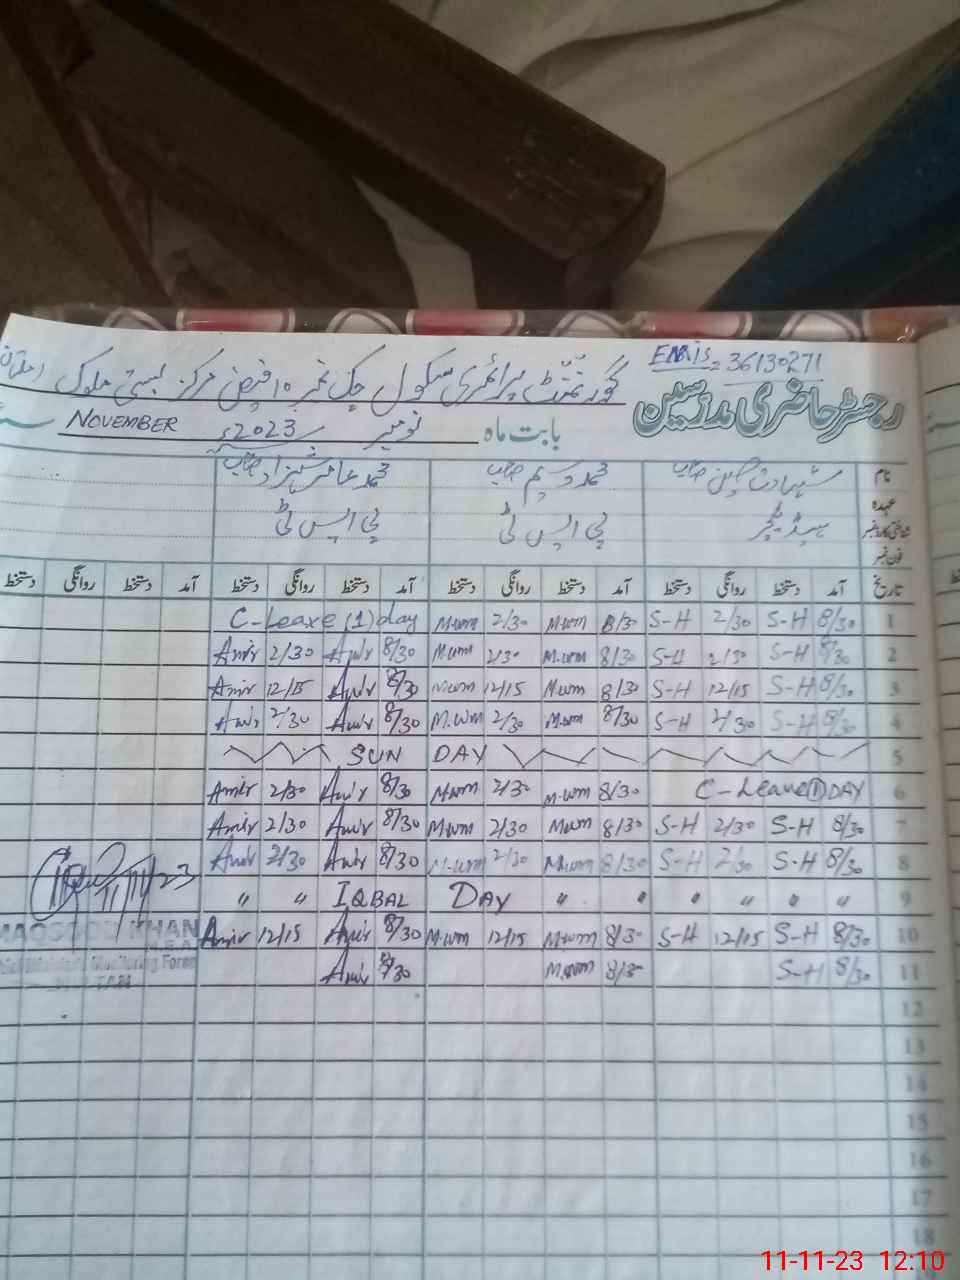 EMIS = 36130271
گورنمنٹ پرائمری سکول چک نمبر ۱۰ فیض مرکز بستی ملوک
رجسٹر حاضری مدرسین
بابت ماہ نومبر 2023ء NOVEMBER
نام شہادت حسین صاحب محمد وسیم صاحب محمد عامر شہزاد صاحب
عہدہ ہیڈ ٹیچر پی ایس ٹی پی ایس ٹی
شناختی کارڈ نمبر
فون نمبر
تاریخ آمد دستخط روانگی دستخط آمد دستخط روانگی دستخط آمد دستخط روانگی دستخط آمد دستخط روانگی دستخط
C-Leave (1) day M.wm 2/30 M.wm 8/30 S-H 2/30 S-H 8/30 1
Amir 2/30 Amir 8/30 M.wm 2/30 M.wm 8/30 S-H 2/30 S-H 8/30 2
Amir 12/15 Amir 8/30 M.wm 12/15 M.wm 8/30 S-H 12/15 S-H 8/30 3
Amir 2/30 Amir 8/30 M.wm 2/30 M.wm 8/30 S-H 2/30 S-H 8/30 4
SUN DAY 5
Amir 2/30 Amir 8/30 M.wm 2/30 M.wm 8/30 C-Leave (1) DAY 6
Amir 2/30 Amir 8/30 M.wm 2/30 M.wm 8/30 S-H 2/30 S-H 8/30 7
Amir 2/30 Amir 8/30 M.wm 2/30 M.wm 8/30 S-H 2/30 S-H 8/30 8
11/11/23
" " IQBAL DAY " " " " " " 9
MAQSOOD KHAN
Amir 12/15 Amir 8/30 M.wm 12/15 M.wm 8/30 S-H 12/15 S-H 8/30 10
M.E.A
Monitoring Force
Amir 8/30 M.wm 8/30 S-H 8/30 11
12
13
14
15
16
17
18
11-11-23 12:10